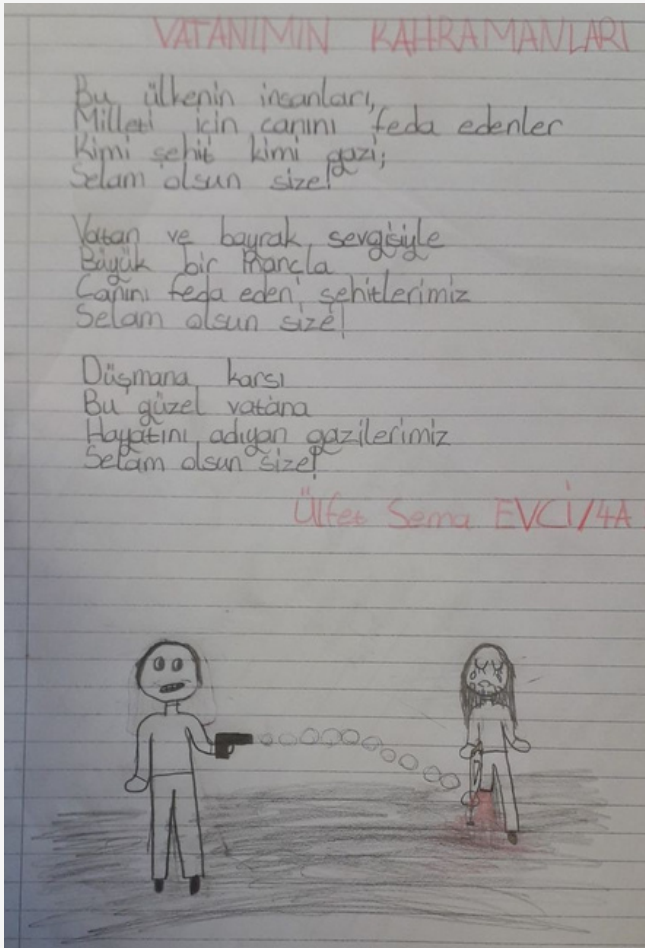 VATANIMIN KAHRAMANLARI
Bu ülkenin insanları,
Milleti için canını feda edenler
Kimi şehit kimi gazi;
Selam olsun size!
Vatan ve bayrak sevgisiyle
Büyük bir inançla
Canını feda eden şehitlerimiz
Selam olsun size!
Düşmana karsı
Bu güzel vatana
Hayatını adıyan gazilerimiz
Selam olsun size!
Ülfet Sema EVCİ/4A